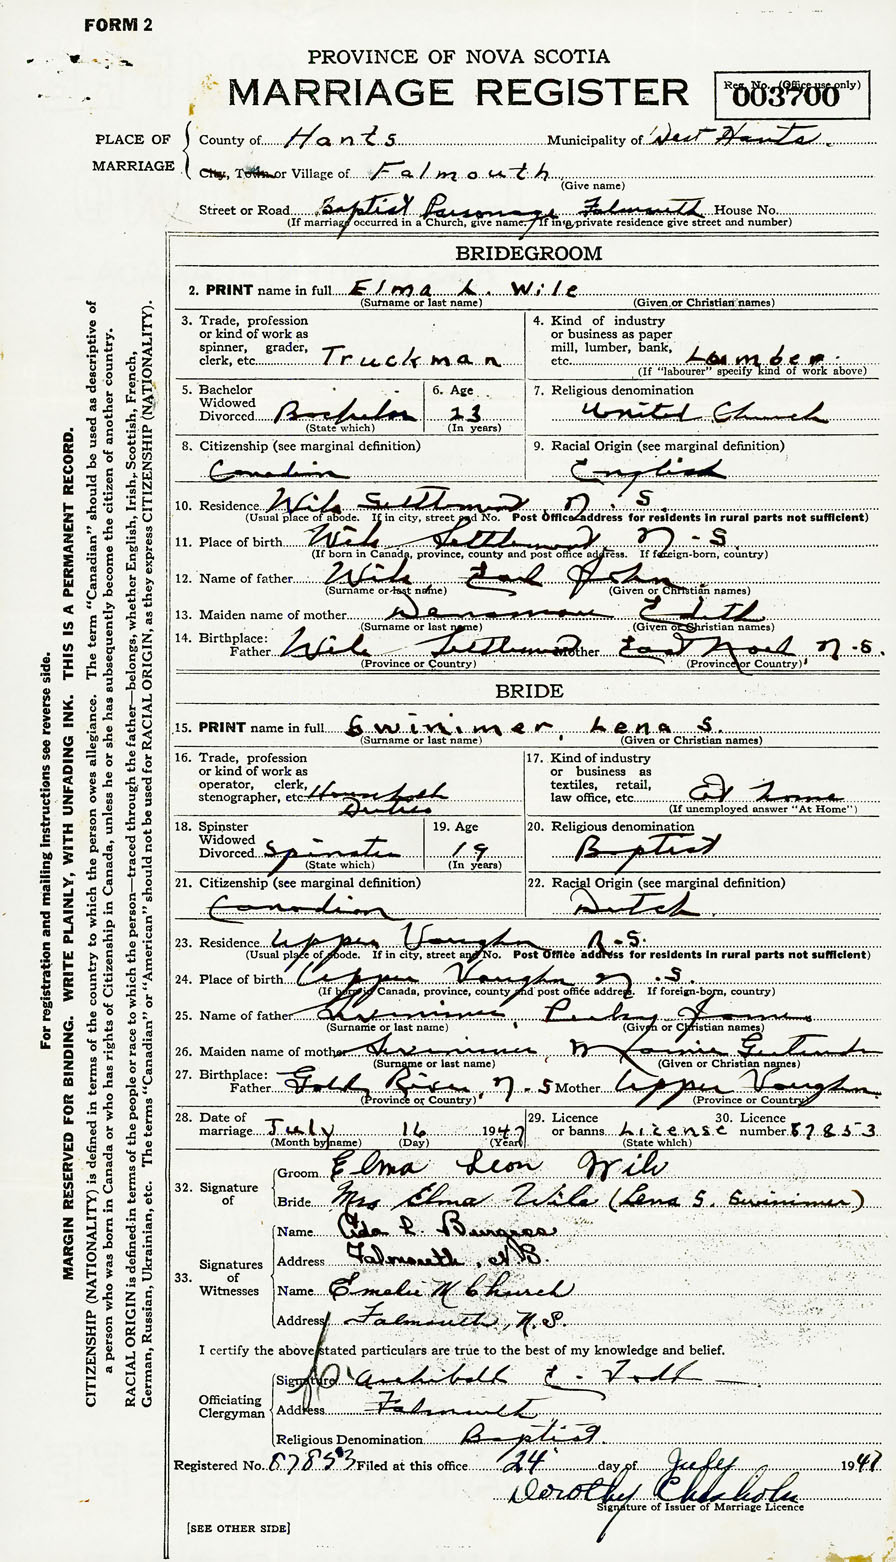 FORM 2
PROVINCE OF NOVA SCOTIA
MARRIAGE REGISTER
Reg. No. (Office use only)
003700
PLACE OF MARRIAGE
County of Hants Municipality of West Hants.
City, Town or Village of Falmouth
(Give name)
Street or Road Baptist Parsonage Falmouth House No.
(If marriage occurred in a Church, give name. If in a private residence give street and number)
BRIDEGROOM
2. PRINT name in full Elma L. Wile
(Surname or last name) (Given or Christian names)
3. Trade, profession or kind of work as spinner, grader, clerk, etc. Truckman
4. Kind of industry or business as paper mill, lumber, bank, etc. Lumber.
(If "labourer" specify kind of work above)
5. Bachelor Widowed Divorced Bachelor
(State which)
6. Age 23
(In years)
7. Religious denomination
United Church
8. Citizenship (see marginal definition)
Canadian
9. Racial Origin (see marginal definition)
English
10. Residence Wile Settlement N.S.
(Usual place of abode. If in city, street and No. Post Office address for residents in rural parts not sufficient)
11. Place of birth Wile Settlement, N.S.
(If born in Canada, province, county and post office address. If foreign-born, country)
12. Name of father Wile, Earl John
(Surname or last name) (Given or Christian names)
13. Maiden name of mother Edith
(Surname or last name) (Given or Christian names)
14. Birthplace:
Father Wile Settlement Mother East Noel N.S.
(Province or Country) (Province or Country)
BRIDE
15. PRINT name in full Swinimer, Lena S.
(Surname or last name) (Given or Christian names)
16. Trade, profession or kind of work as operator, clerk, stenographer, etc. Household Duties
17. Kind of industry or business as textiles, retail, law office, etc. At home
(If unemployed answer "At Home")
18. Spinster Widowed Divorced Spinster
(State which)
19. Age 19
(In years)
20. Religious denomination
Baptist
21. Citizenship (see marginal definition)
Canadian
22. Racial Origin (see marginal definition)
Dutch.
23. Residence Upper Vaughn N.S.
(Usual place of abode. If in city, street and No. Post Office address for residents in rural parts not sufficient)
24. Place of birth Upper Vaughn N.S.
(If born in Canada, province, county and post office address. If foreign-born, country)
25. Name of father Swinimer, James
(Surname or last name) (Given or Christian names)
26. Maiden name of mother Swinimer, Mamie Gertrude
(Surname or last name) (Given or Christian names)
27. Birthplace:
Father Gold River, N.S Mother Upper Vaughn.
(Province or Country) (Province or Country)
28. Date of marriage July 16 1947
(Month by name) (Day) (Year)
29. Licence or banns License
(State which)
30. Licence number 87853
32. Signature of
Groom Elma Leon Wile
Bride Mrs Elma Wile (Lena S. Swinimer)
33. Signatures of Witnesses
Name Ada L. Burgess
Address Falmouth, N.S.
Name Emelie M Church
Address Falmouth, N.S.
I certify the above stated particulars are true to the best of my knowledge and belief.
Officiating Clergyman
Signature Archibald E. Todd
Address Falmouth
Religious Denomination Baptist.
Registered No. 87853 Filed at this office 24 day of July 1947
Dorothy Chisholm
Signature of Issuer of Marriage Licence
[SEE OTHER SIDE]
For registration and mailing instructions see reverse side.
MARGIN RESERVED FOR BINDING. WRITE PLAINLY, WITH UNFADING INK. THIS IS A PERMANENT RECORD.
CITIZENSHIP (NATIONALITY) is defined in terms of the country to which the person owes allegiance. The term "Canadian" should be used as descriptive of
a person who was born in Canada or who has rights of Citizenship in Canada, unless he or she has subsequently become the citizen of another country.
RACIAL ORIGIN is defined in terms of the people or race to which the person—traced through the father—belongs, whether English, Irish, Scottish, French,
German, Russian, Ukrainian, etc. The terms "Canadian" or "American" should not be used for RACIAL ORIGIN, as they express CITIZENSHIP (NATIONALITY).